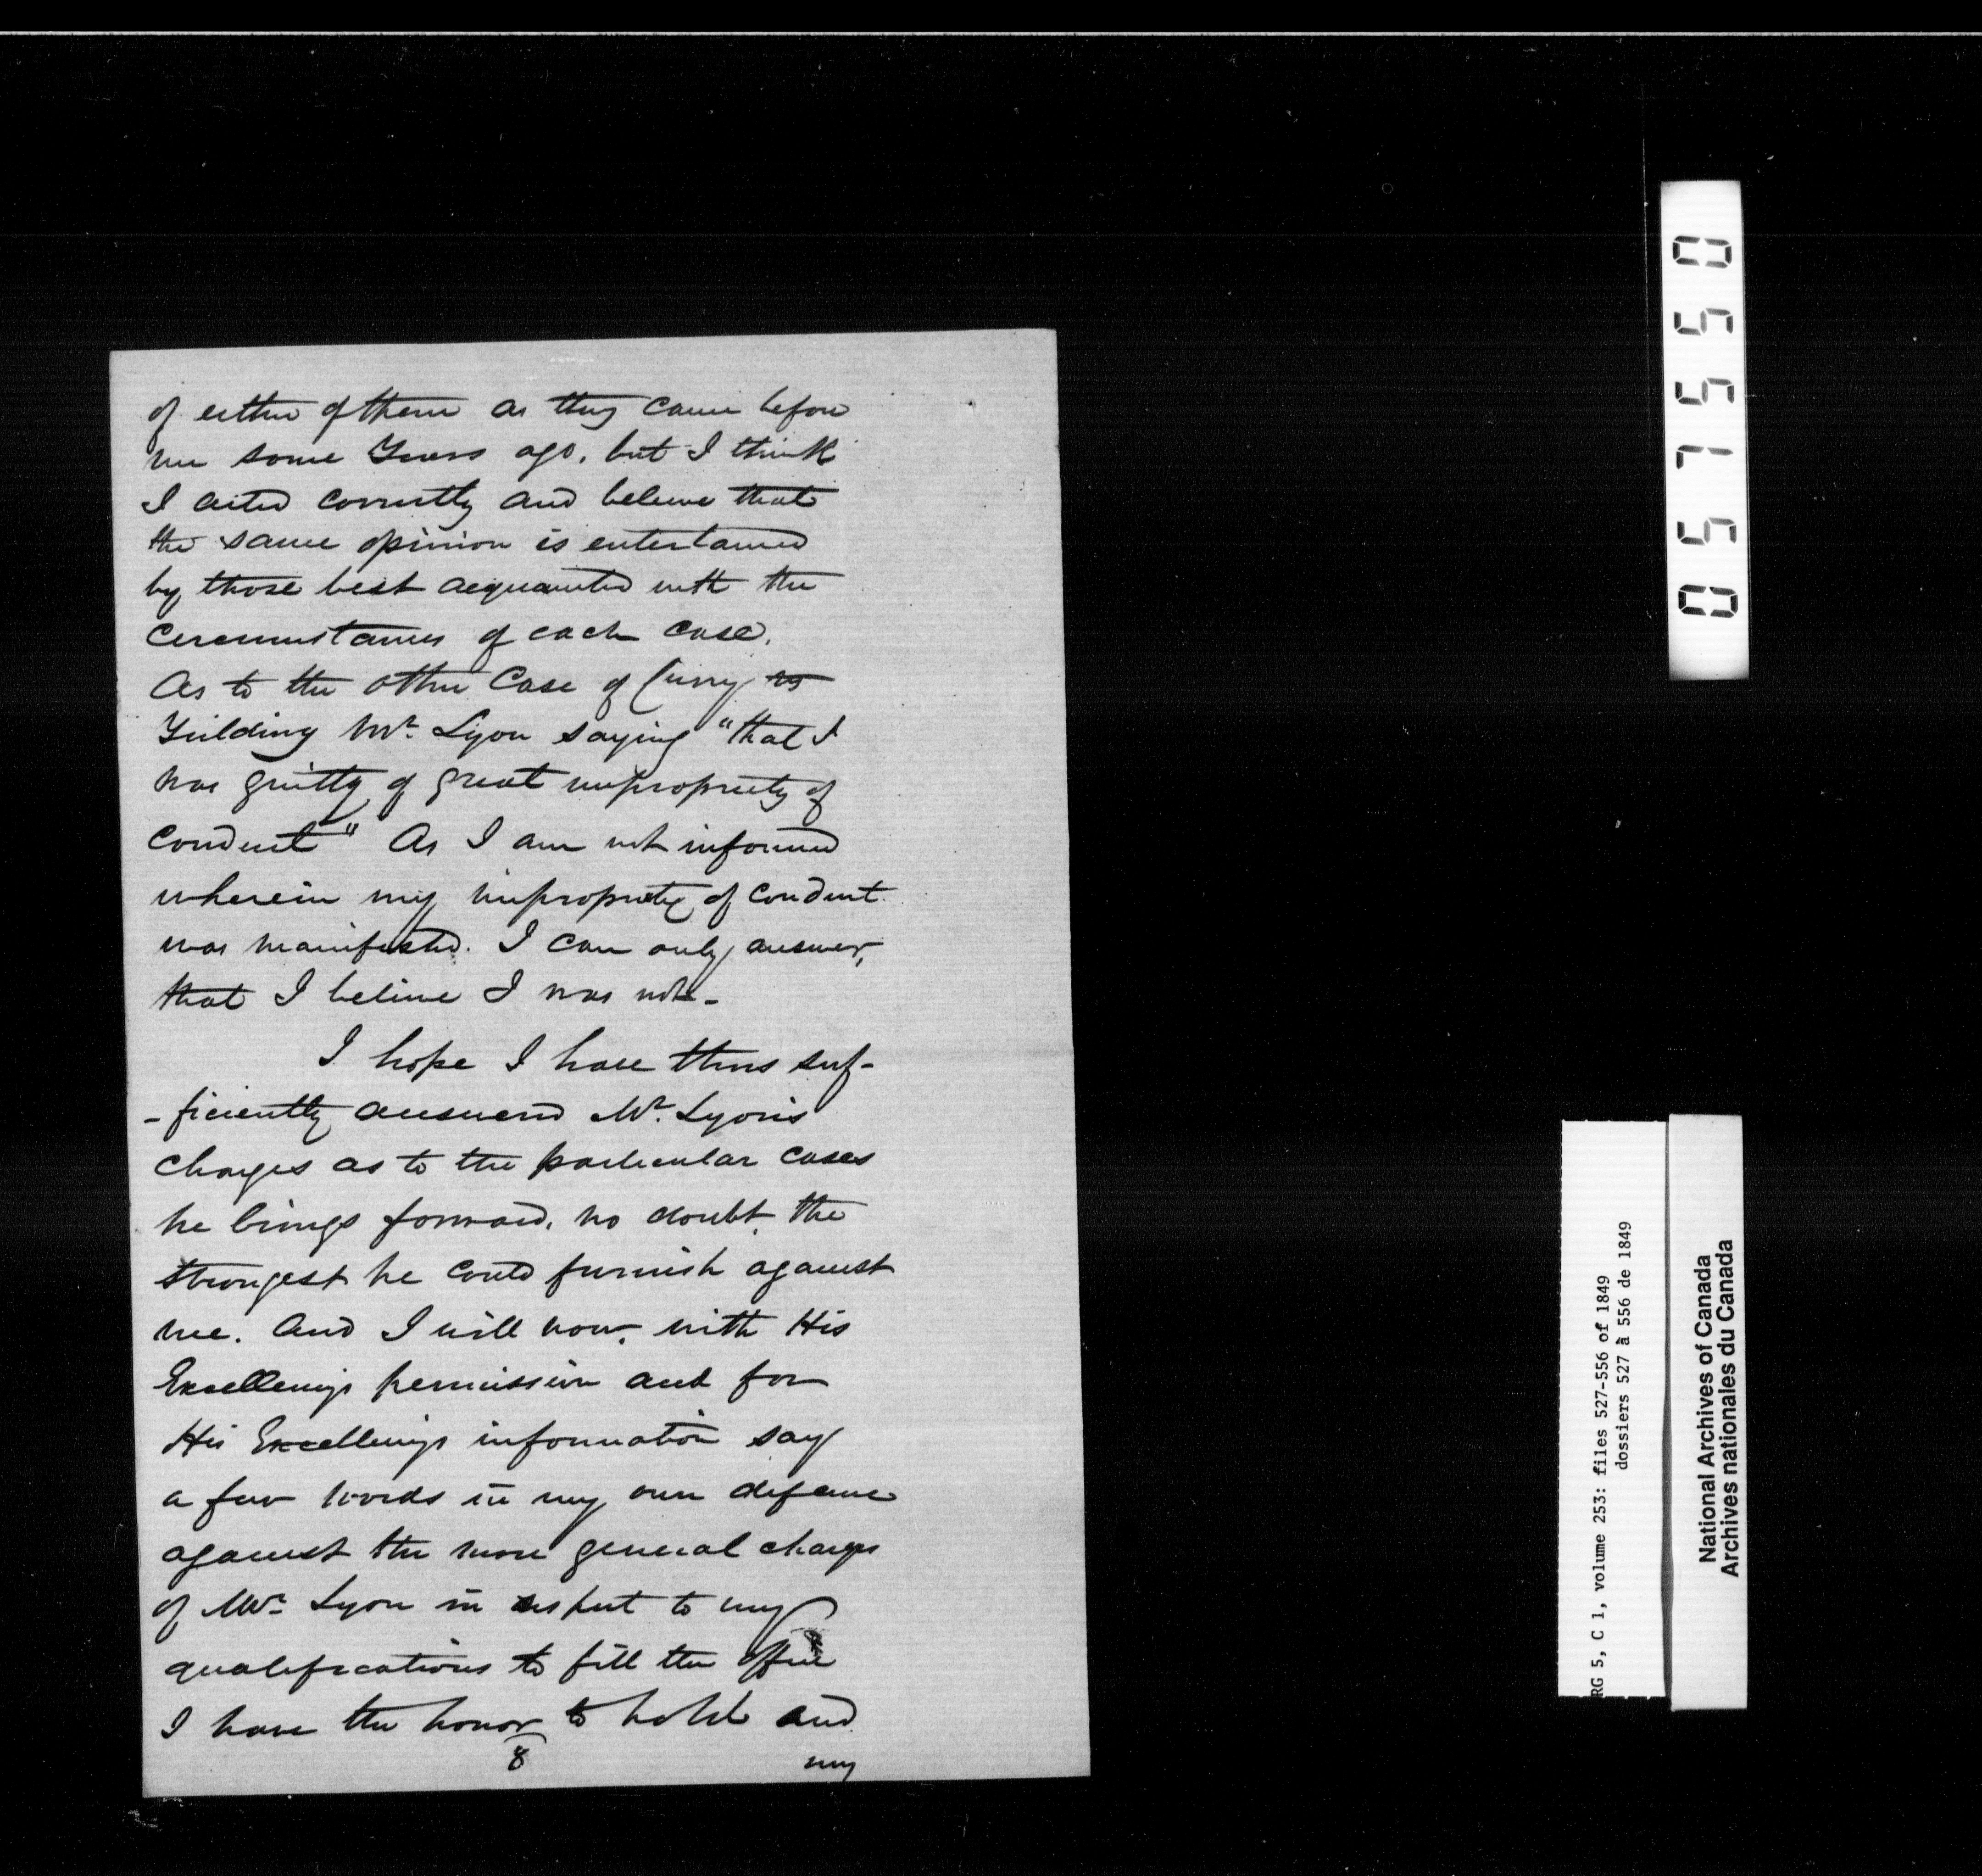 of either of them as they came before
me some Years ago, but I think
I acted correctly and believe that
the same opinion is entertained
by those best acquainted with the
Circumstances of each case.
As to the other Case of Curry vs
Yielding Mr. Lyon saying "that I
was guilty of great impropriety of
Conduct" As I am not informed
wherein my impropriety of Conduct
was manifested. I can only answer,
that I believe I was not-
I hope I have thus suf-
-ficiently answered Mr. Lyon's
charges as to the particular cases
he brings forward, no doubt, the
strongest he could furnish against
me. And I will now, with His
Excellency's permission and for
His Excellency's information say
a few words in my own defence
against the more general charges
of Mr. Lyon in respect to my
qualifications to fill the office
I have the honor to hold and
8
my
055750
RG 5, C 1, volume 253: files 527-556 of 1849
dossiers 527 à 556 de 1849
National Archives of Canada
Archives nationales du Canada